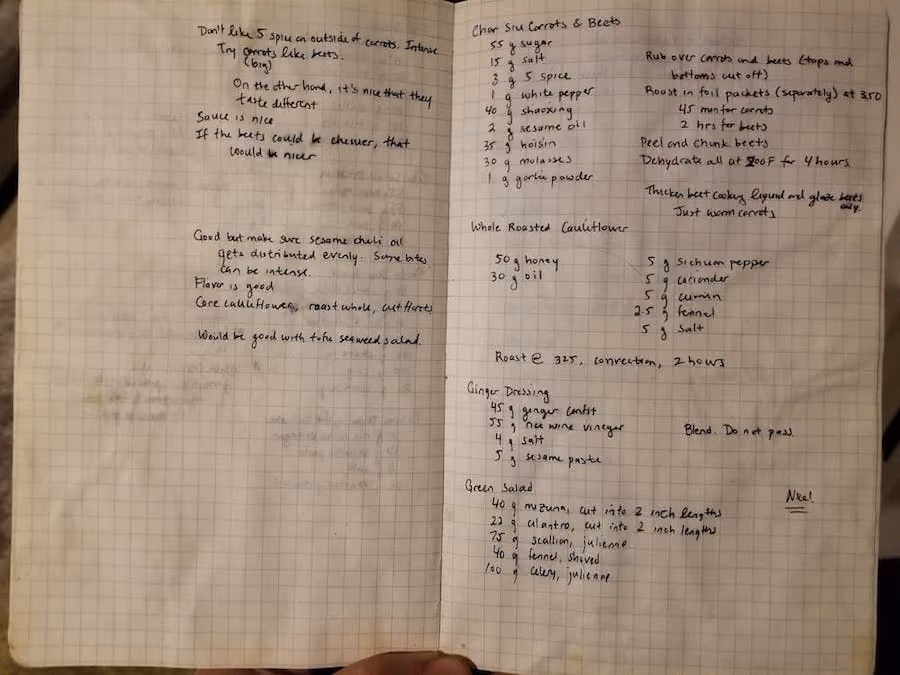 Don't like 5 spice on outside of carrots. Intense
Try carrots like beets.
(big)
On the other hand, it's nice that they
taste different
Sauce is nice
If the beets could be chewier, that
would be nicer
Good but make sure sesame chili oil
gets distributed evenly. Some bites
can be intense.
Flavor is good
Core cauliflower, roast whole, cut florets
Would be good with tofu seaweed salad.
Char Siu Carrots & Beets
55 g sugar
15 g salt
3 g 5 spice
1 g white pepper
40 g shaoxing
2 g sesame oil
35 g hoisin
30 g molasses
1 g garlic powder
Rub over carrots and beets (tops and
bottoms cut off)
Roast in foil packets (separately) at 350
45 min for carrots
2 hrs for beets
Peel and chunk beets
Dehydrate all at 200F for 4 hours
Thicken beet cooking liquid and glaze beets
only.
Just warm carrots
Whole Roasted Cauliflower
50 g honey
30 g oil
5 g Sichuan pepper
5 g coriander
5 g cumin
2.5 g fennel
5 g salt
Roast @ 325, convection, 2 hours
Ginger Dressing
45 g ginger confit
55 g rice wine vinegar
4 g salt
5 g sesame paste
Blend. Do not pass.
Green Salad
Nice!
40 g mizuna, cut into 2 inch lengths
22 g cilantro, cut into 2 inch lengths
75 g scallion, julienne
40 g fennel, shaved
100 g celery, julienne